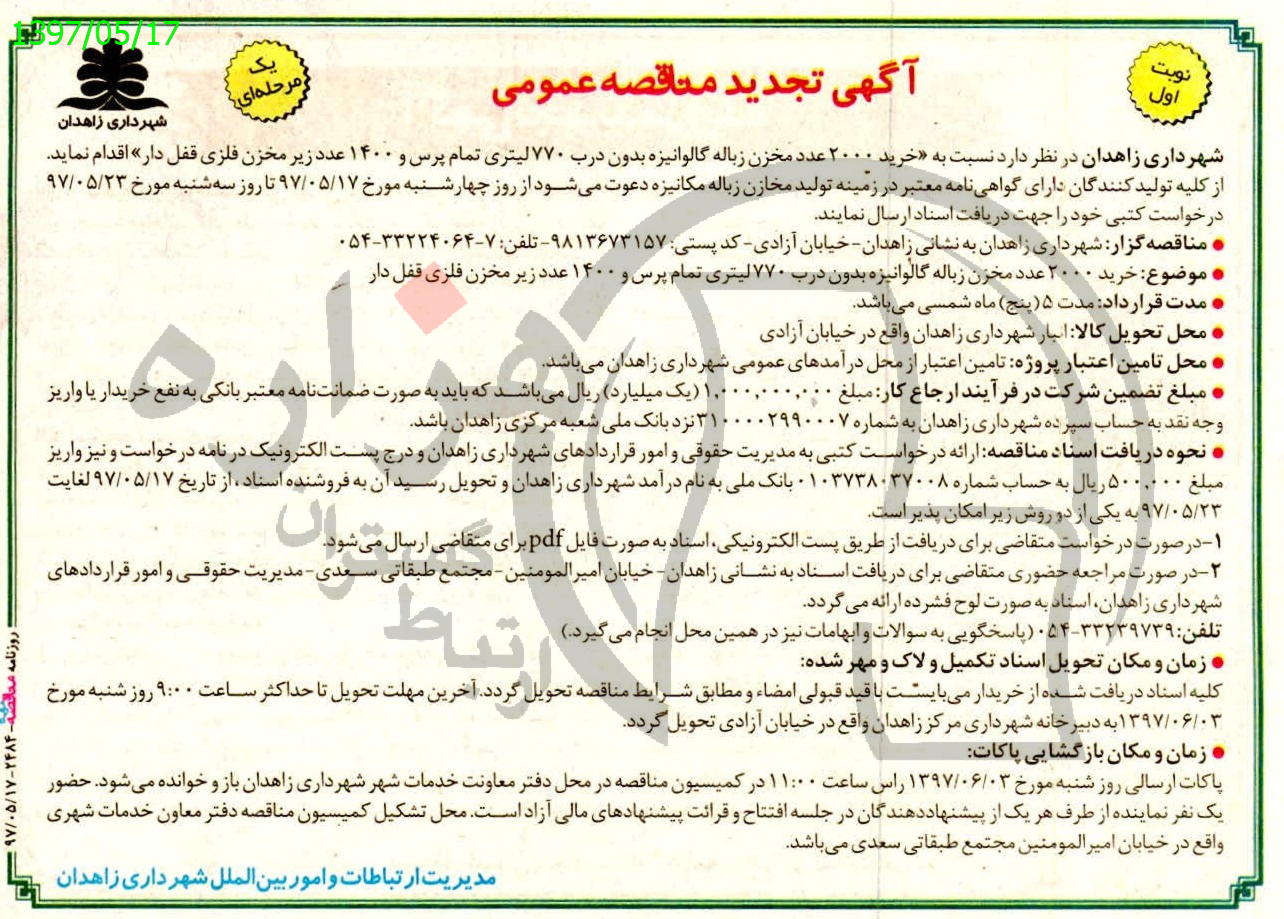 1397/05/17
نوبت
اول
آگهی تجدید مناقصه عمومی
یک
مرحله‌ای
شهرداری زاهدان
شهرداری زاهدان در نظر دارد نسبت به «خرید ۲۰۰۰ عدد مخزن زباله گالوانیزه بدون درب ۷۷۰ لیتری تمام پرس و ۱۴۰۰ عدد زیر مخزن فلزی قفل دار» اقدام نماید.
از کلیه تولیدکنندگان دارای گواهی‌نامه معتبر در زمینه تولید مخازن زباله مکانیزه دعوت می‌شود از روز چهارشنبه مورخ ۹۷/۰۵/۱۷ تا روز سه‌شنبه مورخ ۹۷/۰۵/۲۳
درخواست کتبی خود را جهت دریافت اسناد ارسال نمایند.
● مناقصه‌گزار: شهرداری زاهدان به نشانی زاهدان- خیابان آزادی- کد پستی: ۹۸۱۳۶۷۳۱۵۷- تلفن: ۷-۳۳۲۲۴۰۶۴-۰۵۴
● موضوع: خرید ۲۰۰۰ عدد مخزن زباله گالوانیزه بدون درب ۷۷۰ لیتری تمام پرس و ۱۴۰۰ عدد زیر مخزن فلزی قفل دار
● مدت قرارداد: مدت ۵ (پنج) ماه شمسی می‌باشد.
● محل تحویل کالا: انبار شهرداری زاهدان واقع در خیابان آزادی
● محل تامین اعتبار پروژه: تامین اعتبار از محل درآمدهای عمومی شهرداری زاهدان می‌باشد.
● مبلغ تضمین شرکت در فرآیند ارجاع کار: مبلغ ۱,۰۰۰,۰۰۰,۰۰۰ (یک میلیارد) ریال می‌باشد که باید به صورت ضمانت‌نامه معتبر بانکی به نفع خریدار یا واریز
وجه نقد به حساب سپرده شهرداری زاهدان به شماره ۳۱۰۰۰۰۲۹۹۰۰۰۷ نزد بانک ملی شعبه مرکزی زاهدان باشد.
● نحوه دریافت اسناد مناقصه: ارائه درخواست کتبی به مدیریت حقوقی و امور قراردادهای شهرداری زاهدان و درج پست الکترونیک در نامه درخواست و نیز واریز
مبلغ ۵۰۰,۰۰۰ ریال به حساب شماره ۰۱۰۳۷۳۸۰۳۷۰۰۸ بانک ملی به نام درآمد شهرداری زاهدان و تحویل رسید آن به فروشنده اسناد، از تاریخ ۹۷/۰۵/۱۷ لغایت
۹۷/۰۵/۲۳ به یکی از دو روش زیر امکان پذیر است.
۱-درصورت درخواست متقاضی برای دریافت از طریق پست الکترونیکی، اسناد به صورت فایل pdf برای متقاضی ارسال می‌شود.
۲-در صورت مراجعه حضوری متقاضی برای دریافت اسناد به نشانی زاهدان - خیابان امیرالمومنین-مجتمع طبقاتی سعدی-مدیریت حقوقی و امور قراردادهای
شهرداری زاهدان، اسناد به صورت لوح فشرده ارائه می‌گردد.
تلفن: ۳۳۲۳۹۷۳۹-۰۵۴ (پاسخگویی به سوالات و ابهامات نیز در همین محل انجام می‌گیرد.)
● زمان و مکان تحویل اسناد تکمیل و لاک و مهر شده:
کلیه اسناد دریافت شده از خریدار می‌بایست با قید قبولی امضاء و مطابق شرایط مناقصه تحویل گردد. آخرین مهلت تحویل تا حداکثر ساعت ۹:۰۰ روز شنبه مورخ
۱۳۹۷/۰۶/۰۳ به دبیرخانه شهرداری مرکز زاهدان واقع در خیابان آزادی تحویل گردد.
● زمان و مکان بازگشایی پاکات:
پاکات ارسالی روز شنبه مورخ ۱۳۹۷/۰۶/۰۳ راس ساعت ۱۱:۰۰ در کمیسیون مناقصه در محل دفتر معاونت خدمات شهر شهرداری زاهدان باز و خوانده می‌شود. حضور
یک نفر نماینده از طرف هر یک از پیشنهاددهندگان در جلسه افتتاح و قرائت پیشنهادهای مالی آزاد است. محل تشکیل کمیسیون مناقصه دفتر معاون خدمات شهری
واقع در خیابان امیرالمومنین مجتمع طبقاتی سعدی می‌باشد.
مدیریت ارتباطات و امور بین‌الملل شهرداری زاهدان
روزنامه مناقصه - ۲۴۸۴ - ۹۷/۰۵/۱۷
هزاره
گستران
ارتباط